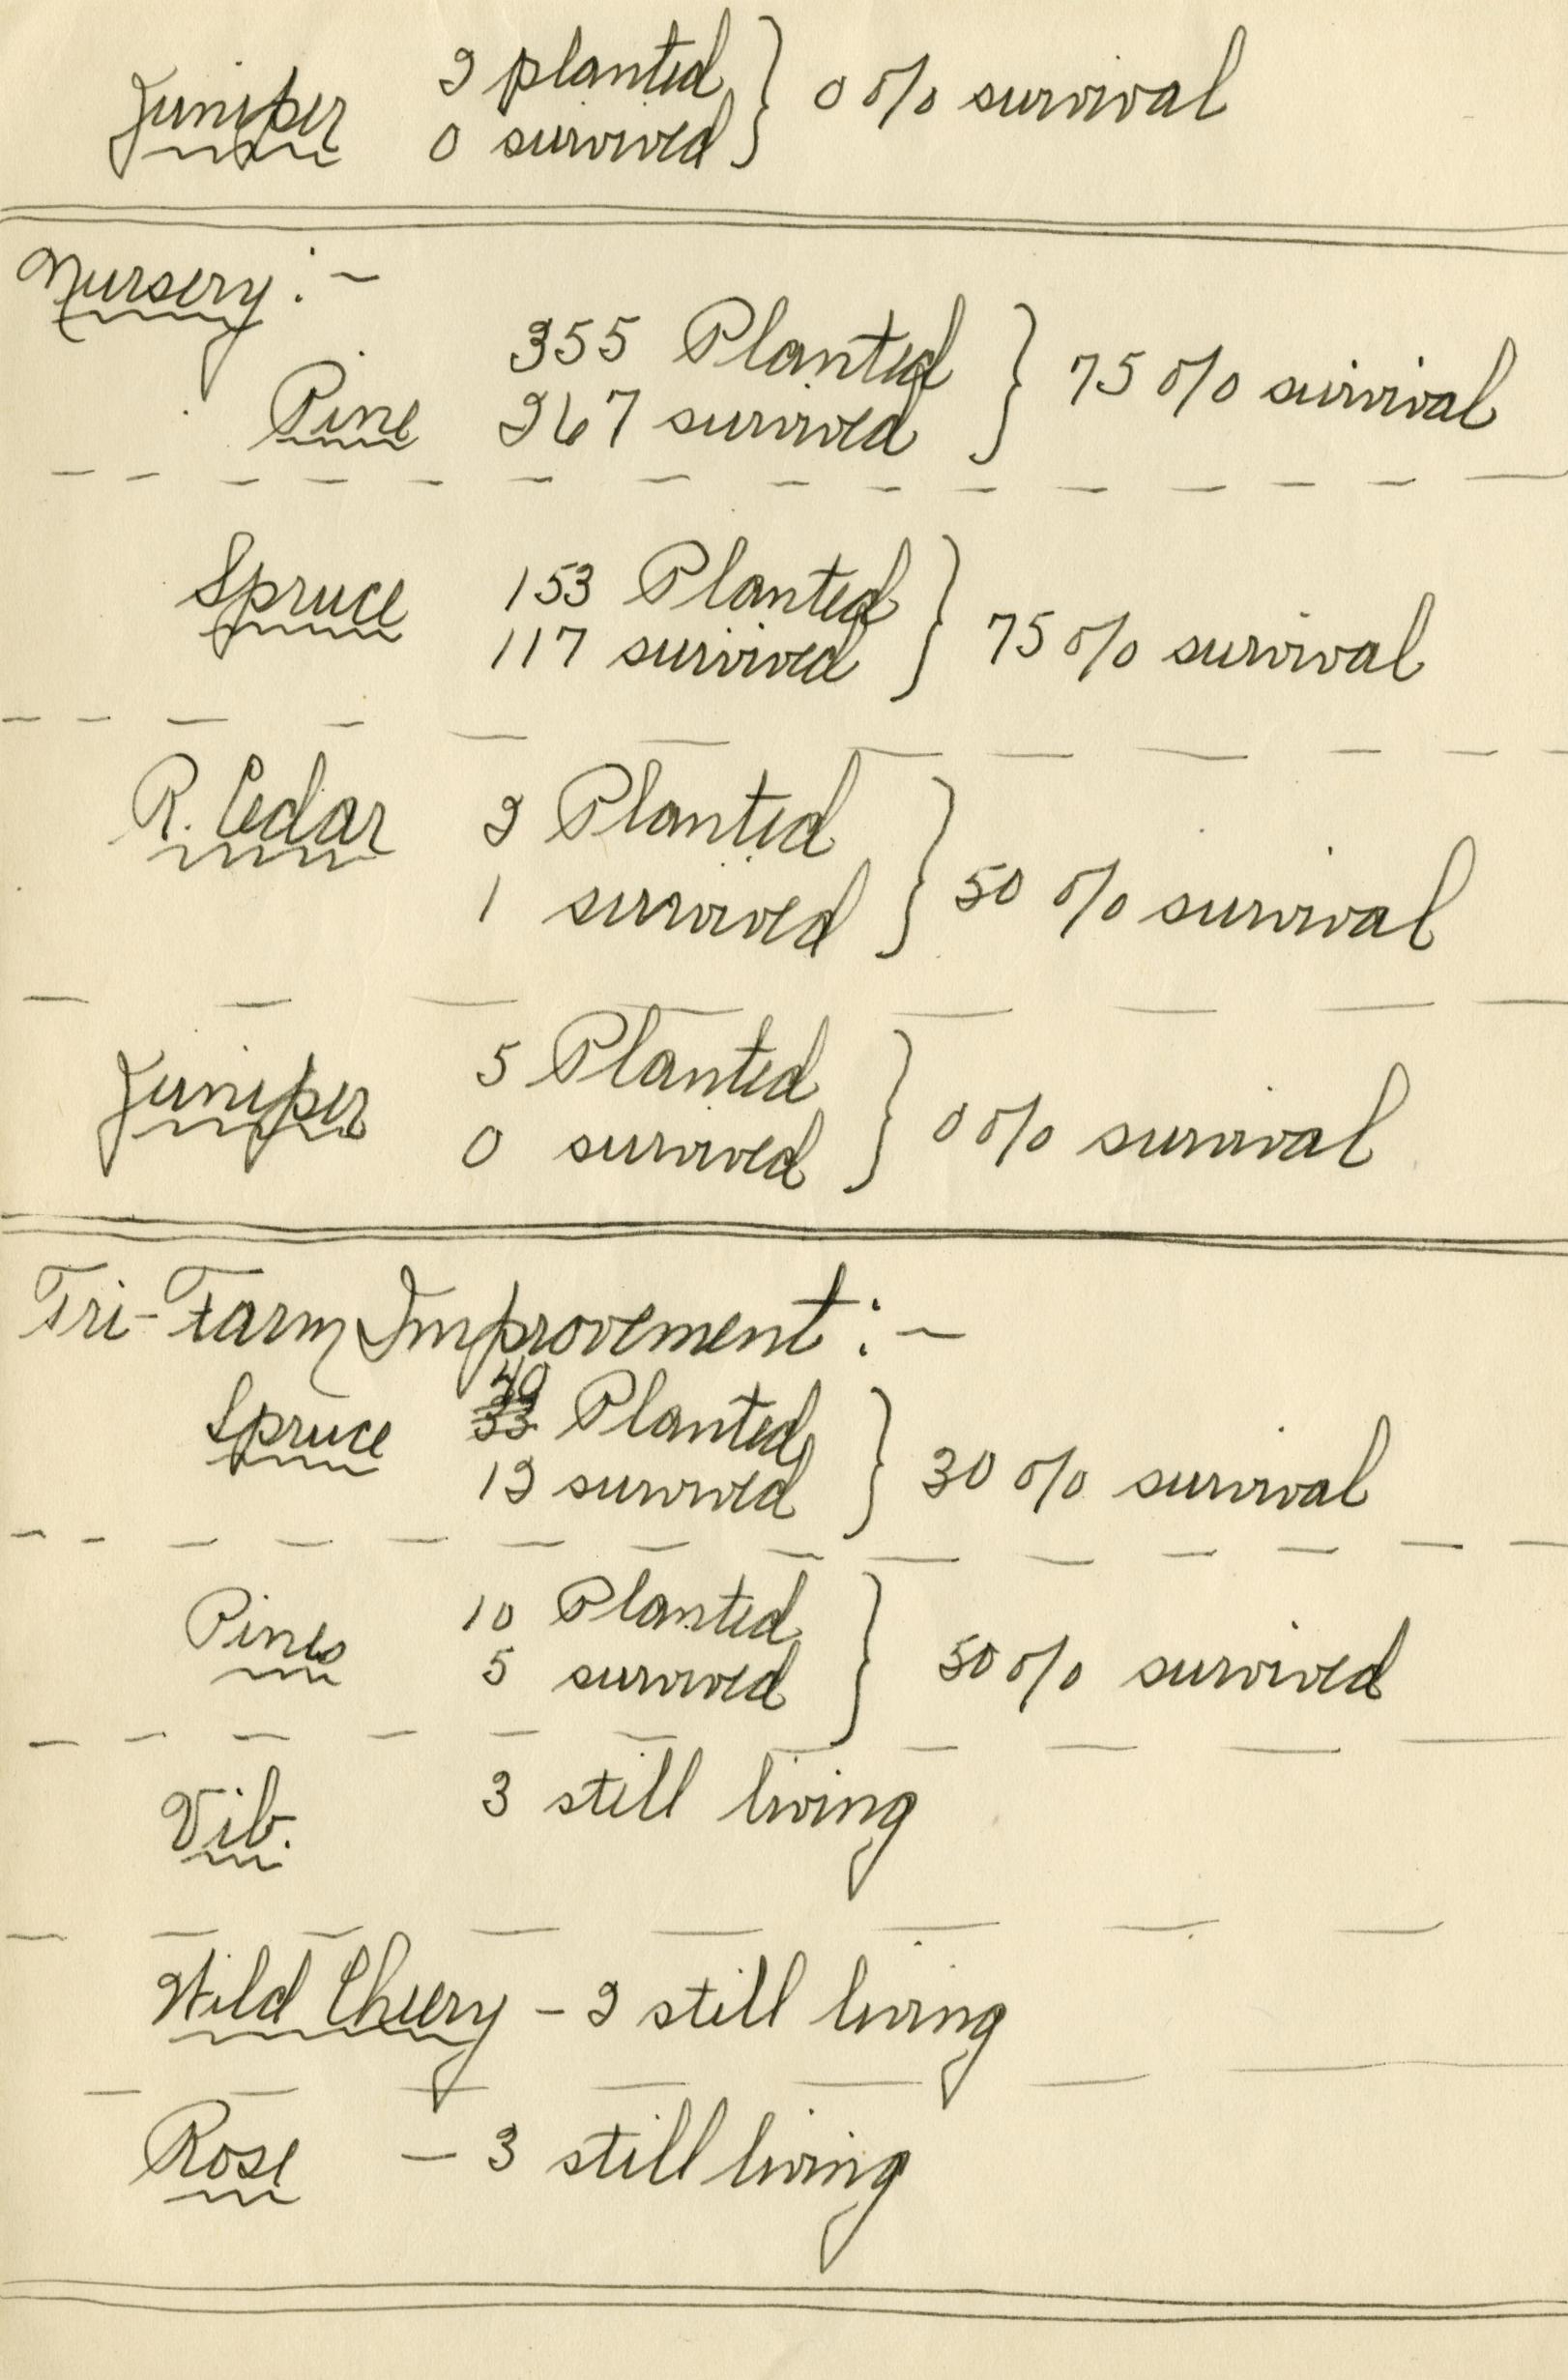 Juniper 2 planted } 0 % survival
0 survived
Nursery :-
355 Planted } 75 % survival
Pine 267 survived
Spruce 153 Planted } 75 % survival
117 survived
R. Cedar 2 Planted } 50 % survival
1 survived
Juniper 5 Planted } 0 % survival
0 survived
Tri-Farm Improvement :-
40
Spruce 33 Planted } 30 % survival
12 survived
Pines 10 Planted } 50 % survived
5 survived
Vib. 3 still living
Wild Cheery - 2 still living
Rose - 3 still living